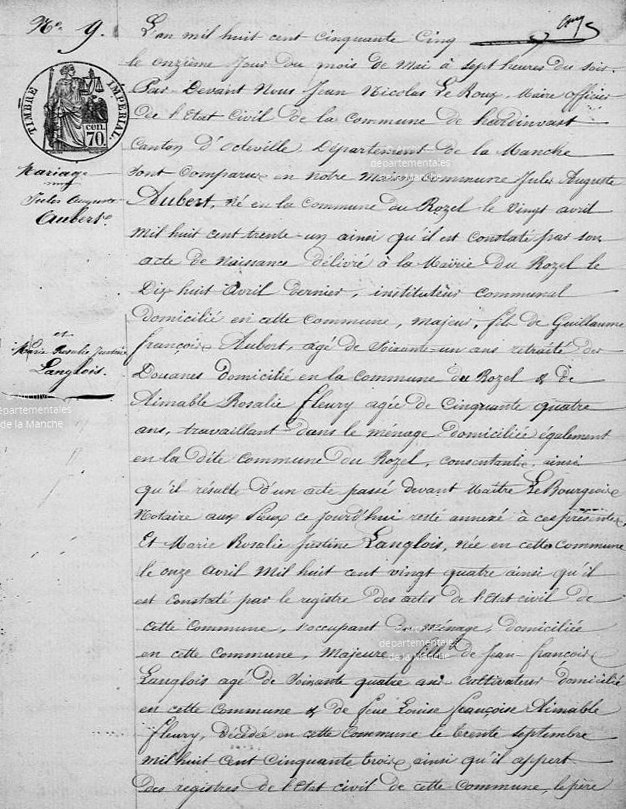 N.o 9.
L'an mil huit cent cinquante cinq
le onzième jour du mois de Mai à sept heures du soir
Par Devant Nous Jean Nicolas Le Roux Maire officier
De l'Etat Civil de la Commune de hardinvast
Canton d'Octeville Département de la Manche
sont Comparus en notre Maison Commune Jules Auguste
Aubert, né en la Commune du Rozel le vingt avril
Mil huit cent trente-un ainsi qu'il est constaté par son
acte de Naissance délivré à la Mairie du Rozel le
Dix huit Avril dernier, instituteur communal
domicilié en cette Commune, majeur, fils de Guillaume
françois Aubert, agé de Soixante-un ans retraité des
Douanes domicilié en la Commune du Rozel & de
Aimable Rosalie fleury agée de Cinquante quatre
ans, travaillant dans le ménage domiciliée également
en la dite Commune du Rozel, consentante, ainsi
qu'il résulte d'un acte passé devant Maître Le Bourgeois
Notaire aux Pieux ce jourd'hui resté annexé à ces présentes
Et Marie Rosalie Justine Langlois, née en cette Commune
le onze Avril Mil huit cent vingt quatre ainsi qu'il
est constaté par le registre des actes de l'Etat civil de
cette Commune, s'occupant de ménage, domiciliée
en cette Commune, Majeure, fille de Jean-françois
Langlois agé de Soixante quatre ans cultivateur domicilié
en cette Commune & de feue Louise françoise Aimable
fleury, décédée en cette Commune le trente septembre
mil huit cent cinquante trois ainsi qu'il appert
des registres de l'Etat civil de cette Commune, le père
TIMBRE IMPERIAL
70 cen.
Mariage
Jules Auguste
Aubert
et
Marie Rosalie Justine
Langlois.
Archives
départementales
de la Manche
départementales
de la Manche
départementales
de la Manche